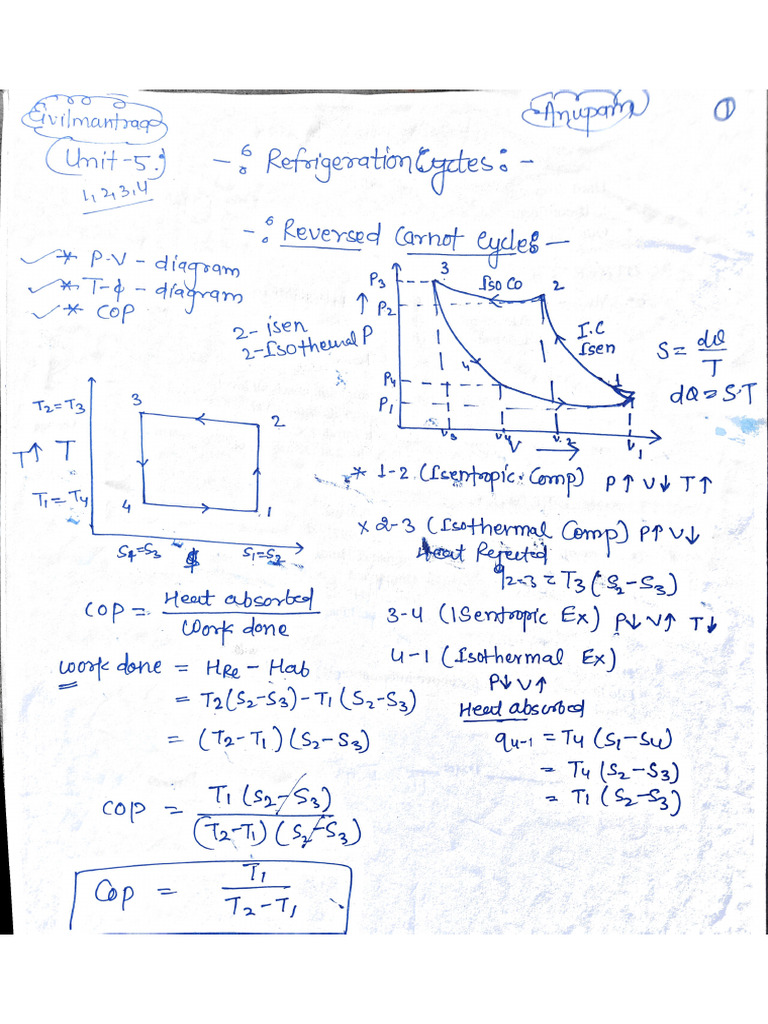 Civilmantraa
Anupam
1
(Unit-5:)
1, 2, 3, 4
-: Refrigeration Cycles:-
-: Reversed Carnot Cycle:-
* P-V - diagram
* T-ϕ - diagram
* COP
2- isen
2-Isothermal P
P3
P2
P4
P1
3
Iso Co
2
I.C
Isen
4
1
V3
V4
V2
V1
V
S = dQ/T
dQ = S·T
T2=T3
T↑ T
T1=T4
3
2
4
1
S4=S3
ϕ
S1=S2
* 1-2 (Isentropic Comp) P↑ V↓ T↑
x 2-3 (Isothermal Comp) P↑ V↓
Heat Rejected
q2-3 = T3 (S2-S3)
3-4 (ISentropic Ex) P↓ V↑ T↓
4-1 (Isothermal Ex)
P↓ V↑
Heat absorbed
q4-1 = T4 (S1-S4)
= T4 (S2-S3)
= T1 (S2-S3)
COP = Heat absorbed / Work done
Work done = HRe - Hab
= T2(S2-S3) - T1 (S2-S3)
= (T2-T1) (S2-S3)
COP = T1 (S2-S3) / (T2-T1) (S2-S3)
COP = T1 / T2-T1